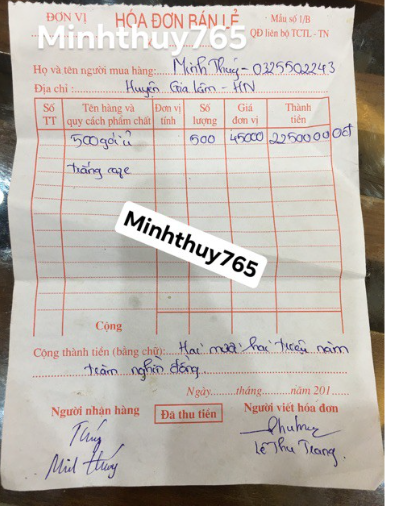 ĐƠN VỊ HÓA ĐƠN BÁN LẺ Mẫu số 1/B
Minhthuy765 QĐ liên bộ TCTL - TN
Họ và tên người mua hàng: Minh Thúy - 0325502243
Địa chỉ: Huyện Gia Lâm - HN
Số TT Tên hàng và quy cách phẩm chất Đơn vị tính Số lượng Giá đơn vị Thành tiền
500 gói ủ 500 45000 22500000đ
trắng
Minhthuy765
Cộng
Cộng thành tiền (bằng chữ): Hai mươi hai triệu năm
trăm nghìn đồng
Ngày.......tháng.......năm 201......
Người nhận hàng Đã thu tiền Người viết hóa đơn
Thúy
Minh Thúy Lê Thu Trang.